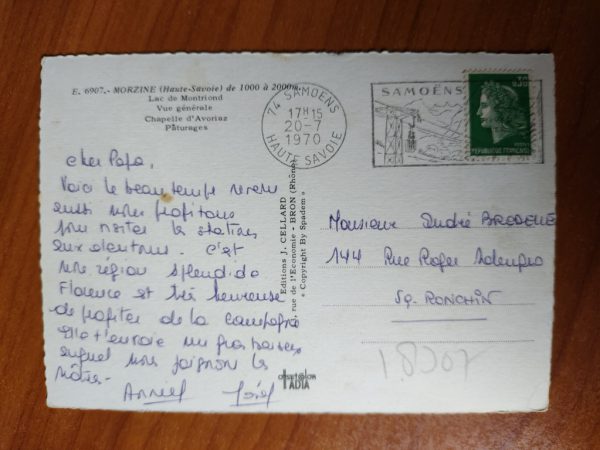 E. 6907.- MORZINE (Haute-Savoie) de 1000 à 2000m
Lac de Montriond
Vue générale
Chapelle d'Avoriaz
Pâturages
Cher Papa,
Voici le beau temps revenu
aussi nous profitons
pour visiter les stations
aux alentours. C'est
une région splendide
Florence est très heureuse
de profiter de la campagne
Elle t'envoie un gros baiser
auquel nous joignons les
nôtres.
Annie
Editions J. CELLARD
rue de l'Economie - BRON (Rhône)
« Copyright By Spadem »
74 SAMOËNS
17H15
20-7
1970
HAUTE SAVOIE
SAMOËNS
0,30
REPUBLIQUE FRANÇAISE
Monsieur André
144 Rue Roger Salengro
59. RONCHIN
18307
offset color
TADIA